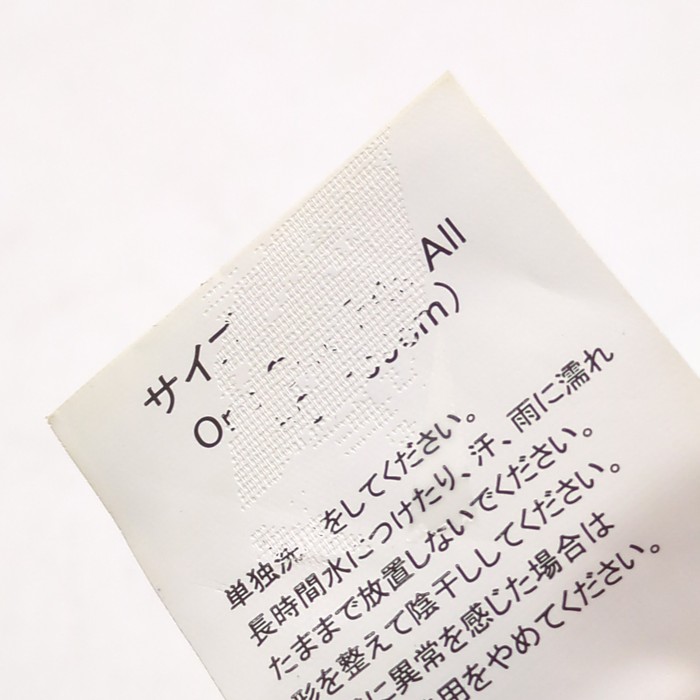 サイ All
Or m)
単独洗 をしてください。
長時間水につけたり、汗、雨に濡れ
たままで放置しないでください。
形を整えて陰干ししてください。
に異常を感じた場合は
用をやめてください。